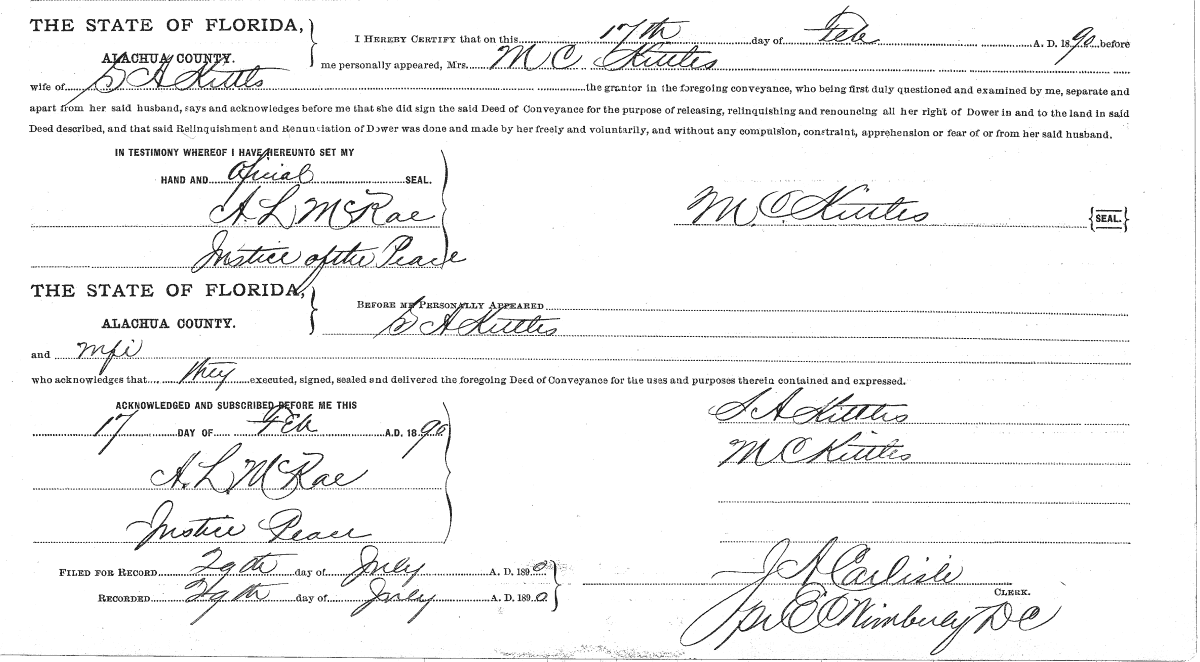 THE STATE OF FLORIDA,
ALACHUA COUNTY.
I HEREBY CERTIFY that on this 17th day of Feb A. D. 1890 before
me personally appeared, Mrs. M C Kittles
wife of S A Kittles the grantor in the foregoing conveyance, who being first duly questioned and examined by me, separate and
apart from her said husband, says and acknowledges before me that she did sign the said Deed of Conveyance for the purpose of releasing, relinquishing and renouncing all her right of Dower in and to the land in said
Deed described, and that said Relinquishment and Renunciation of Dower was done and made by her freely and voluntarily, and without any compulsion, constraint, apprehension or fear of or from her said husband.
IN TESTIMONY WHEREOF I HAVE HEREUNTO SET MY
HAND AND Oficial SEAL.
A. L McRae
M. C. Kittles {SEAL.}
Justice of the Peace
THE STATE OF FLORIDA,
ALACHUA COUNTY.
BEFORE ME PERSONALLY APPEARED
S A Kittles
and
who acknowledges that they executed, signed, sealed and delivered the foregoing Deed of Conveyance for the uses and purposes therein contained and expressed.
ACKNOWLEDGED AND SUBSCRIBED BEFORE ME THIS
17 DAY OF Feb A.D. 1890
S A Kittles
M C Kittles
A. L. McRae
Justice Peace
FILED FOR RECORD 29th day of July A. D. 1890
RECORDED 29th day of July A. D. 1890
J A Carlisle
CLERK.
pr E C Wimberly D C